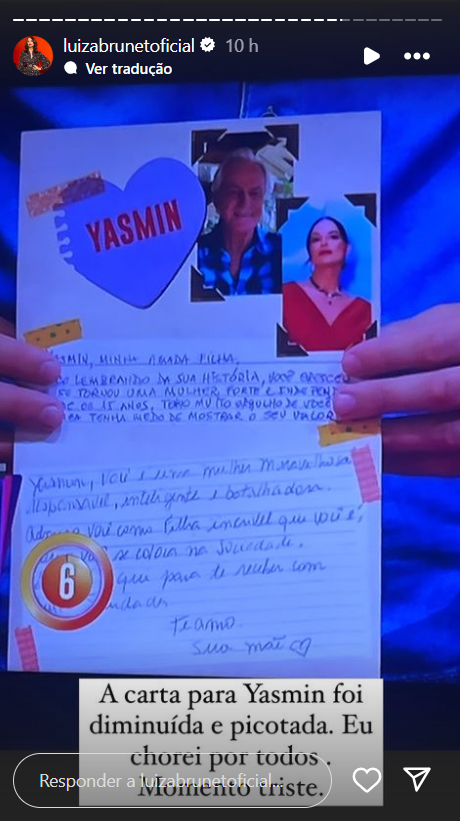 luizabrunetoficial 10 h
Ver tradução
YASMIN
MINHA AMADA FILHA,
LEMBRANDO DA SUA HISTÓRIA, VOCÊ CRESCEU
SE TORNOU UMA MULHER FORTE E
OS 15 ANOS, TENHO MUITO ORGULHO DE VOCÊ
TENHA MEDO DE MOSTRAR O SEU VALOR
Yasmin, você é uma mulher maravilhosa
responsável, inteligente e batalhadora.
você como filha incrível que você é,
se coloca na sociedade.
que para te receber com
6
Te amo
Sua mãe
A carta para Yasmin foi
diminuída e picotada. Eu
chorei por todos .
Momento triste.
Responder a luizabrunetoficial...